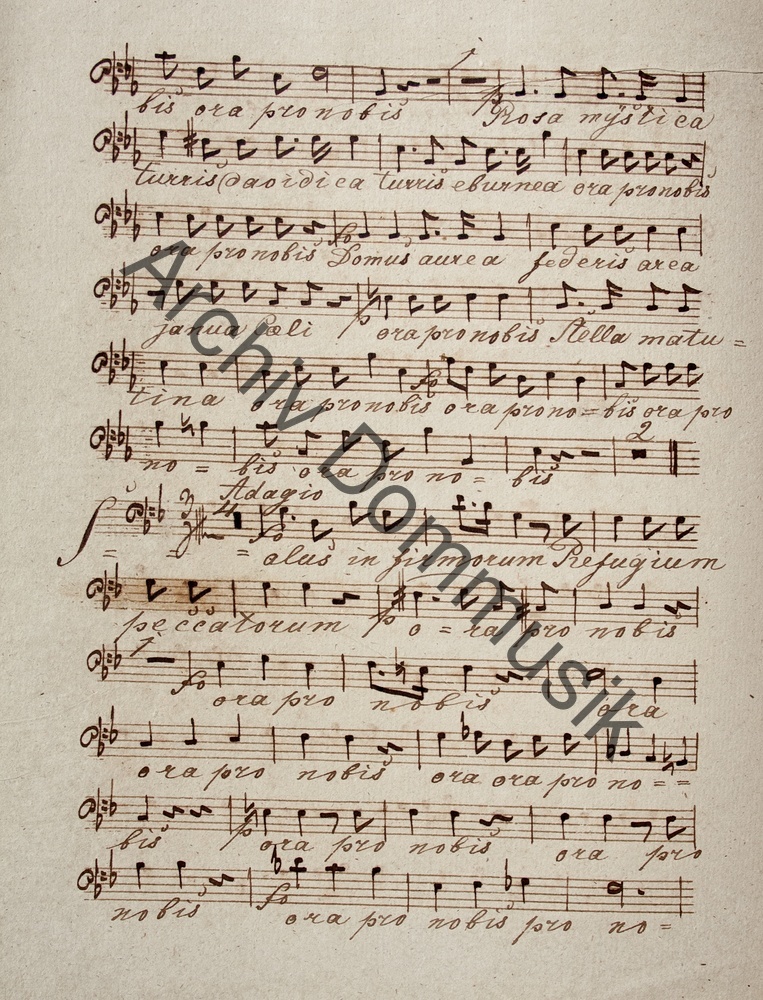 bis ora pro nobis p Rosa mystica
turris Davidica turris eburnea ora pro nobis
ora pro nobis fo Domus aurea federis arca
janua Cæli p ora pro nobis Stella matu =
tina ora pro nobis fo ora pro no = bis ora pro
2
no = bis ora pro no = bis
Adagio
3 4
S = = alus in firmorum Refugium
fo
peccatorum p o = ra pro nobis
1
fo ora pro nobis ora
ora pro nobis ora ora pro no = =
bis p ora pro nobis ora pro
nobis fo ora pro nobis pro no =
Archiv Dommusik